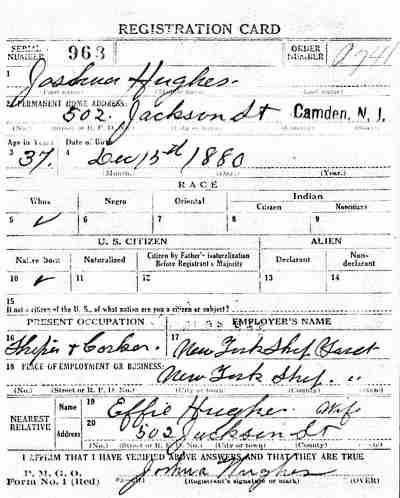 REGISTRATION CARD
SERIAL NUMBER 963 ORDER NUMBER
1 Joshua Hughes.
(First name) (Middle name) (Last name)
2 PERMANENT HOME ADDRESS:
502. Jackson St Camden, N. J.
(No.) (Street or R. F. D. No.) (City or town) (County) (State)
Age in Years Date of Birth
3 37. 4 Dec 15th 1880
(Month.) (Day.) (Year.)
RACE
White Negro Oriental Indian
Citizen Noncitizen
5 ✓ 6 7 8 9
U. S. CITIZEN ALIEN
Native Born Naturalized Citizen by Father's Naturalization Before Registrant's Majority Declarant Non-declarant
10 ✓ 11 12 13 14
15
If not a citizen of the U. S., of what nation are you a citizen or subject?
PRESENT OCCUPATION EMPLOYER'S NAME
16 Chipper & Corker. 17 New York Ship
18 PLACE OF EMPLOYMENT OR BUSINESS:
New York Ship. "
(No.) (Street or R. F. D. No.) (City or town) (County) (State)
NEAREST RELATIVE Name 19 Effie Hughes. Wife
Address 20 502 Jackson St
(No.) (Street or R. F. D. No.) (City or town) (County) (State)
I AFFIRM THAT I HAVE VERIFIED ABOVE ANSWERS AND THAT THEY ARE TRUE
P. M. G. O.
Form No. 1 (Red) Joshua Hughes
(Registrant's signature or mark) (OVER)